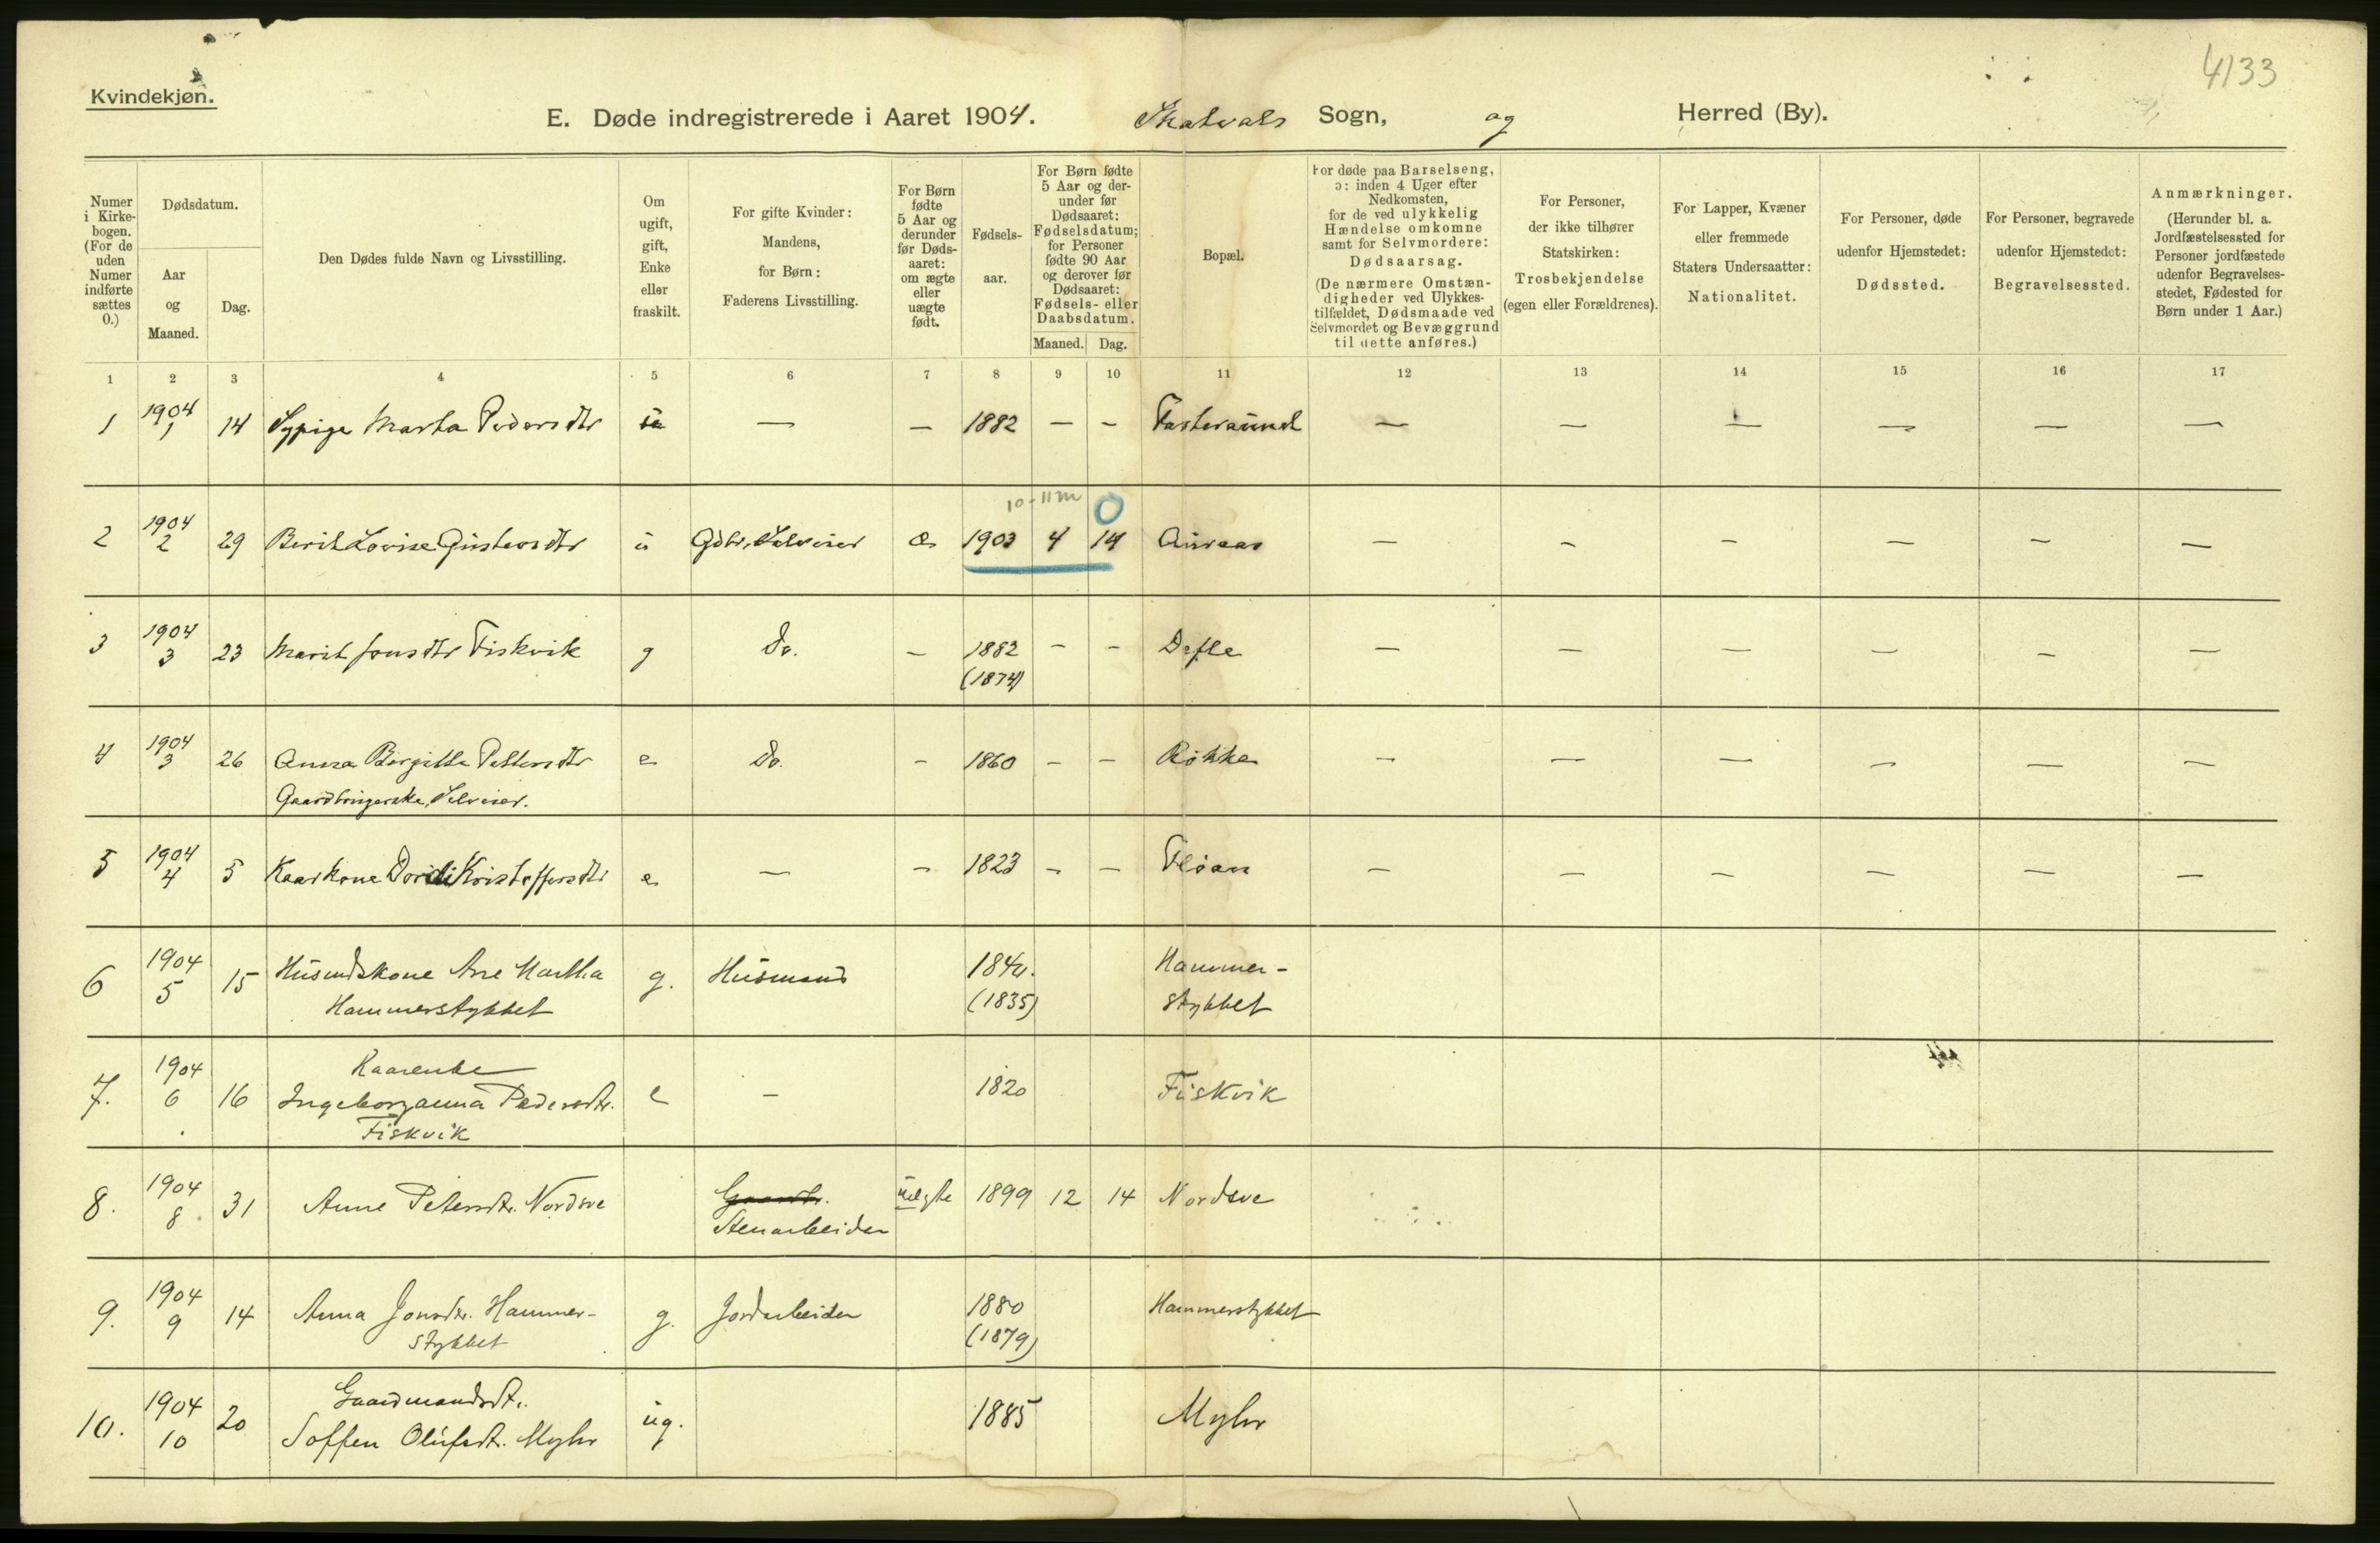 4133
Kvindekjøn.
E. Døde indregistrerede i Aaret 1904. Skatvals Sogn, og Herred (By).
Numer i Kirke-bogen. (For de uden Numer indførte sættes 0.)
Dødsdatum.
Aar og Maaned.
Dag.
Den Dødes fulde Navn og Livsstilling.
Om ugift, gift, Enke eller fraskilt.
For gifte Kvinder: Mandens, for Børn: Faderens Livsstilling.
For Børn fødte 5 Aar og derunder før Døds-aaret: om ægte eller uægte født.
Fødsels-aar.
For Børn fødte 5 Aar og der-under før Dødsaaret: Fødselsdatum; for Personer fødte 90 Aar og derover før Dødsaaret: Fødsels- eller Daabsdatum.
Maaned. Dag.
Bopæl.
For døde paa Barselseng, ɔ: inden 4 Uger efter Nedkomsten, for de ved ulykkelig Hændelse omkomne samt for Selvmordere: Dødsaarsag. (De nærmere Omstæn-digheder ved Ulykkes-tilfældet, Dødsmaade ved Selvmordet og Bevæggrund til dette anføres.)
For Personer, der ikke tilhører Statskirken: Trosbekjendelse (egen eller Forældrenes).
For Lapper, Kvæner eller fremmede Staters Undersaatter: Nationalitet.
For Personer, døde udenfor Hjemstedet: Dødssted.
For Personer, begravede udenfor Hjemstedet: Begravelsessted.
Anmærkninger. (Herunder bl. a. Jordfæstelsessted for Personer jordfæstede udenfor Begravelses-stedet, Fødested for Børn under 1 Aar.)
1 2 3 4 5 6 7 8 9 10 11 12 13 14 15 16 17
1 1904 1 14 Sypige Marta Pedersdtr u — — 1882 — — — — — — — —
10-11 m 0
2 1904 2 29 Berit Lovise Gustavsdtr u Gdbr, Selveier æ 1903 4 14 Auraas — — — — — —
3 1904 3 23 Marit Jonsdtr Fiskvik g Do. — 1882 — — — — — — — —
(1874)
4 1904 3 26 Anna Birgitte Pettersdtr e Do. — 1860 — — Røkke — — — — — —
Gaardbrugerske, Selveier.
5 1904 4 5 Kaarkone Dordi Kristoffersdtr e — — 1823 — — Fløan — — — — — —
6 1904 5 15 Husmdskone Ane Martha g. Husmand 1840. Hammer-
Hammerstykket (1835) stykket
7. 1904 6 16 Kaarenke
Ingeborganna Pedersdtr. e — 1820 Fiskvik
Fiskvik
8. 1904 8 31 Anne Petersdtr. Nordsve Gaardbr. uægte 1899 12 14 Nordsve
Stenarbeider
9. 1904 9 14 Anna Jonsdtr. Hammer- g. Jordarbeider 1880 Hammerstykket
stykket (1879)
10. 1904 10 20 Gaardmandsdt.
Soffen Olufsdt. Myhr ug. 1885 Myhr